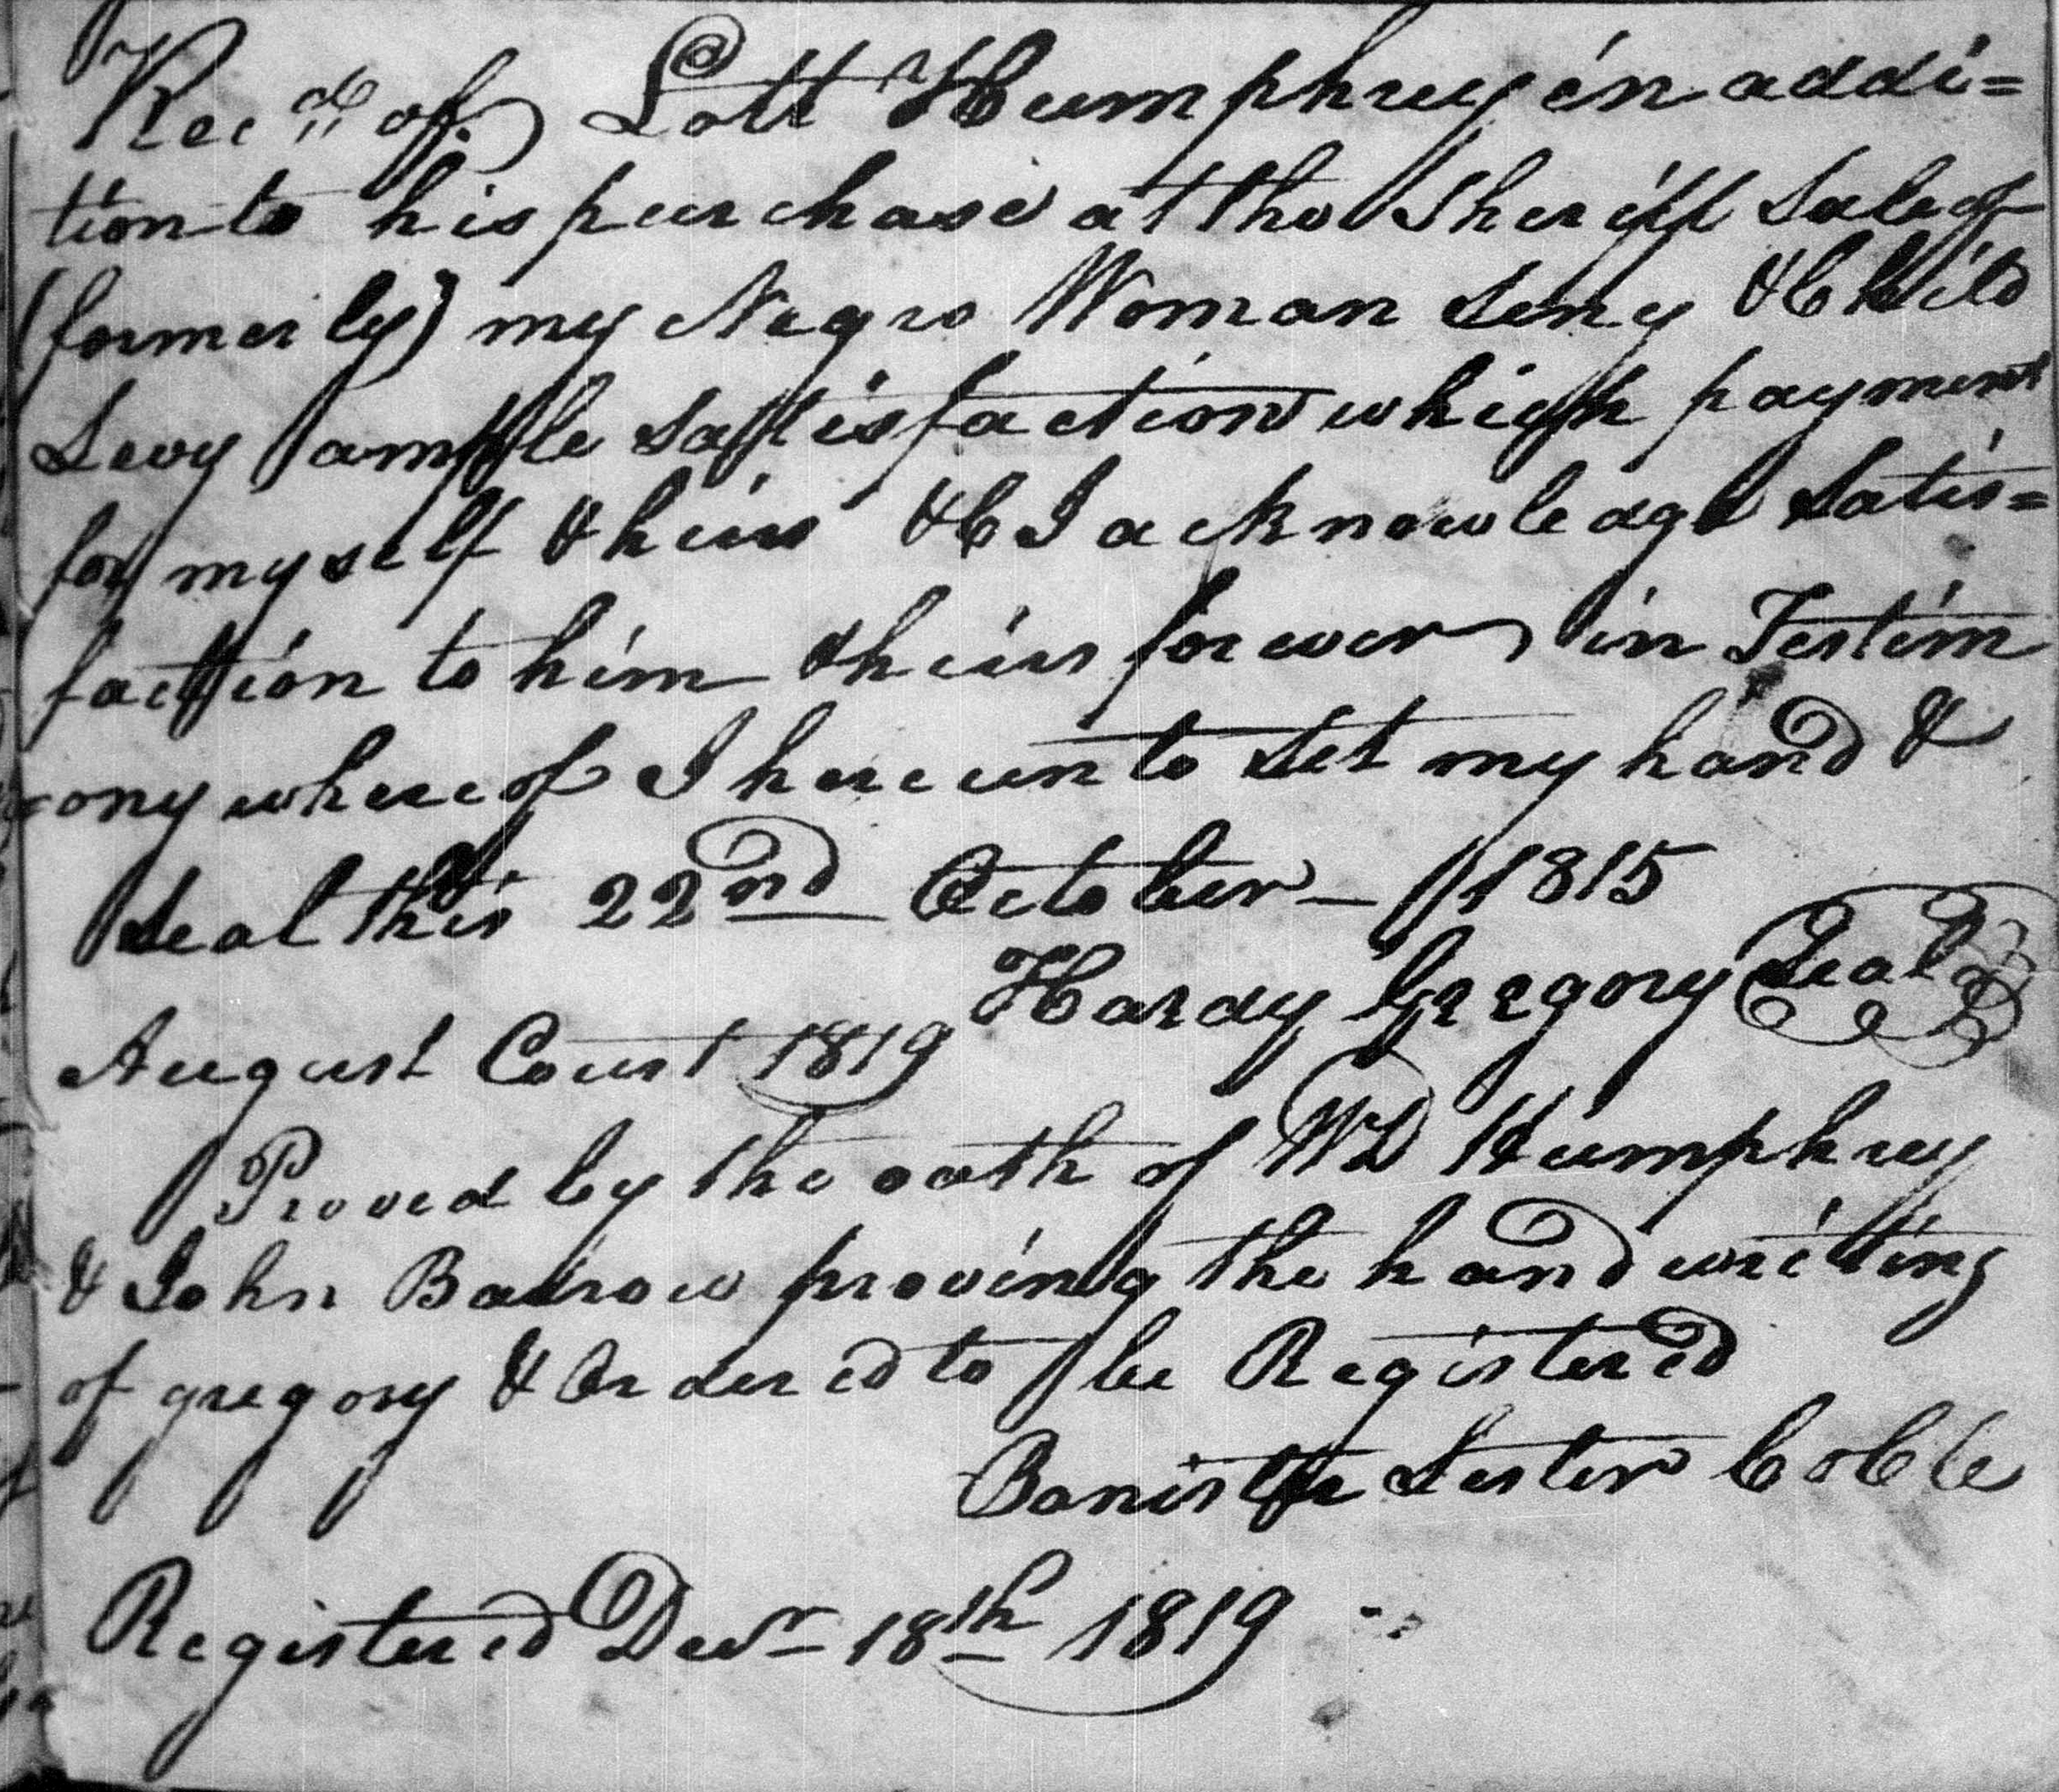 Recd. of Lott Humphrey in addi=
tion to his purchase at the Sheriff Sale of
(formerly) my Negro Woman Seny & Child
Levy ample satisfaction which payment
for myself & heirs &C I acknowledge satis=
faction to him & heirs forever in Testim
ony whereof I hereunto set my hand &
seal this 22nd October – 1815
Hardy Gregory Seal
August Court 1819
Proved by the oath of WD Humphrey
& John Barrow proving the hand writing
of gregory & Ordered to be Registered
Banister Lester
Registered Decr 18th 1819